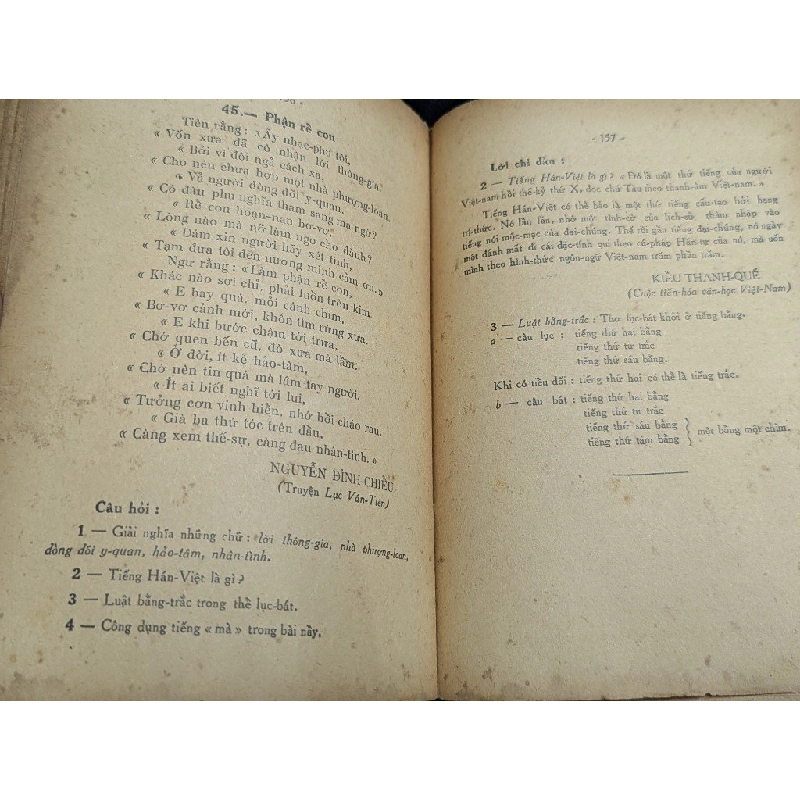 45.— Phận rể con
Tiên rằng : « Ấy nhạc-phụ tôi,
« Vốn xưa đã có nhận lời thông-gia
« Bởi vì đôi ngã cách xa,
« Cho nên chưa hợp một nhà phượng-loan.
« Về người dòng dõi y-quan,
« Có đâu phụ nghĩa tham sang mà ngờ?
« Rể con hoạn-nạn bơ-vơ
« Lòng nào mà nỡ làm ngơ cho đành?
« Dám xin người hãy xét tình,
« Tạm đưa tôi đến nương mình cám ơn.»
Ngư rằng : «Làm phận rể con,
« Khác nào sợi chỉ, phất luồn trên kim.
« E bay quá, mỏi cánh chim,
« Bơ-vơ cảnh mới, khôn tìm rừng xưa.
« E khi bước chậm tới trưa.
« Chớ quen bến cũ, đò xưa mà lầm.
« Ở đời, ít kẻ hảo-tâm,
« Chớ nên tin quá mà lầm tay người.
« Ít ai biết nghĩ tới lui,
« Tưởng cơn vinh hiển, nhớ hồi cháo rau.
« Già ba thứ tóc trên đầu,
« Càng xem thế-sự, càng đau nhân-tình. »
NGUYỄN ĐÌNH CHIỂU
(Truyện Lục Vân-Tiên)
Câu hỏi :
1 — Giải nghĩa những chữ : lời thông-gia, nhà phượng-loan,
dòng dõi y-quan, hảo-tâm, nhân-tình.
2 — Tiếng Hán-Việt là gì ?
3 — Luật bằng-trắc trong thể lục-bát.
4 — Công dụng tiếng « mà » trong bài nầy.
- 157 -
Lời chỉ dẫn :
2 — Tiếng Hán-Việt là gì ? « Đó là một thứ tiếng của người
Việt-nam hồi thế-kỷ thứ X, đọc chữ Tàu theo thanh-âm Việt-nam. »
Tiếng Hán-Việt có thể bảo là một thứ tiếng cấu-tạo bởi hạng
trí-thức. Nó lần lần, nhờ một tình-cờ của lịch-sử, thâm nhập vào
tiếng nói mộc-mạc của đại-chúng. Thế rồi gần tiếng đại-chúng, nó ngày
một đánh mất đi cái đặc-tính qui theo cú-pháp Hán-tự của nó, mà uốn
mình theo hình-thức ngôn-ngữ Việt-nam trăm phần trăm.
KIỀU THANH-QUẾ
(Cuộc tiến-hóa văn-học Việt-Nam)
3 — Luật bằng-trắc : Thơ lục-bát khởi ở tiếng bằng.
a — câu lục : tiếng thứ hai bằng
tiếng thứ tư trắc
tiếng thứ sáu bằng.
Khi có tiểu đối : tiếng thứ hai có thể là tiếng trắc.
b — câu bát : tiếng thứ hai bằng
tiếng thứ tư trắc
tiếng thứ sáu bằng
tiếng thứ tám bằng
một bằng một chìm.